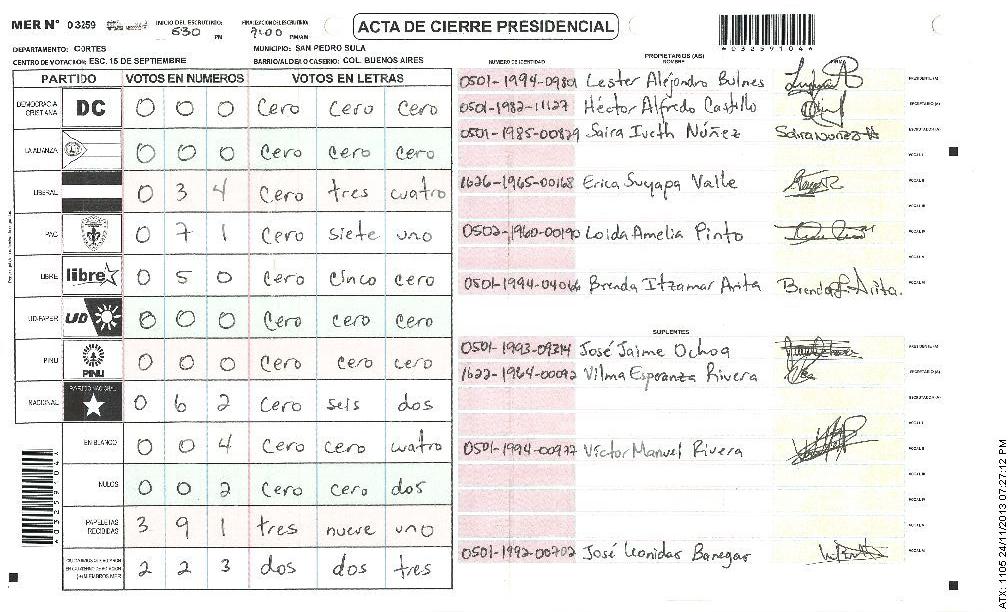 MER Nº 03259 INICIO DEL ESCRUTINIO: 630 PM FINALIZACION ESCRUTINIO: 7:00 PM/AM ACTA DE CIERRE PRESIDENCIAL
DEPARTAMENTO: CORTES MUNICIPIO: SAN PEDRO SULA
CENTRO DE VOTACION: ESC. 15 DE SEPTIEMBRE BARRIO/ALDEA O CASERIO: COL. BUENOS AIRES
PARTIDO VOTOS EN NUMEROS VOTOS EN LETRAS
DEMOCRACIA CRISTIANA DC 0 0 0 Cero Cero Cero
LA ALIANZA 0 0 0 Cero cero cero
LIBERAL 0 3 4 Cero tres cuatro
PAC 0 7 1 Cero siete uno
LIBRE libre 0 5 0 Cero cinco cero
UD-FAPER UD 0 0 0 Cero cero cero
PINU PINU 0 0 0 Cero cero cero
NACIONAL PARTIDO NACIONAL 0 6 2 Cero seis dos
EN BLANCO 0 0 4 Cero cero cuatro
NULOS 0 0 2 Cero cero dos
PAPELETAS RECIBIDAS 3 9 1 tres nueve uno
2 2 3 dos dos tres
NUMERO DE IDENTIDAD PROPIETARIOS (AS) NOMBRE FIRMA
0501-1994-09801 Lester Alejandro Bulnes
0501-1982-11127 Héctor Alfredo Castillo
0501-1985-00829 Saira Iveth Núñez
1626-1965-00168 Erica Suyapa Valle
0502-1960-00190 Loida Amelia Pinto
0501-1994-04066 Brenda Itzamar Arita Brenda I. Arita.
SUPLENTES
0501-1993-09314 José Jaime Ochoa
1622-1964-00092 Vilma Esperanza Rivera
0501-1994-00977 Víctor Manuel Rivera
0501-1992-00702 José Leonidas Banegas
*0325910 4*
ATX: 1105 24/11/2013 07:27:12 PM